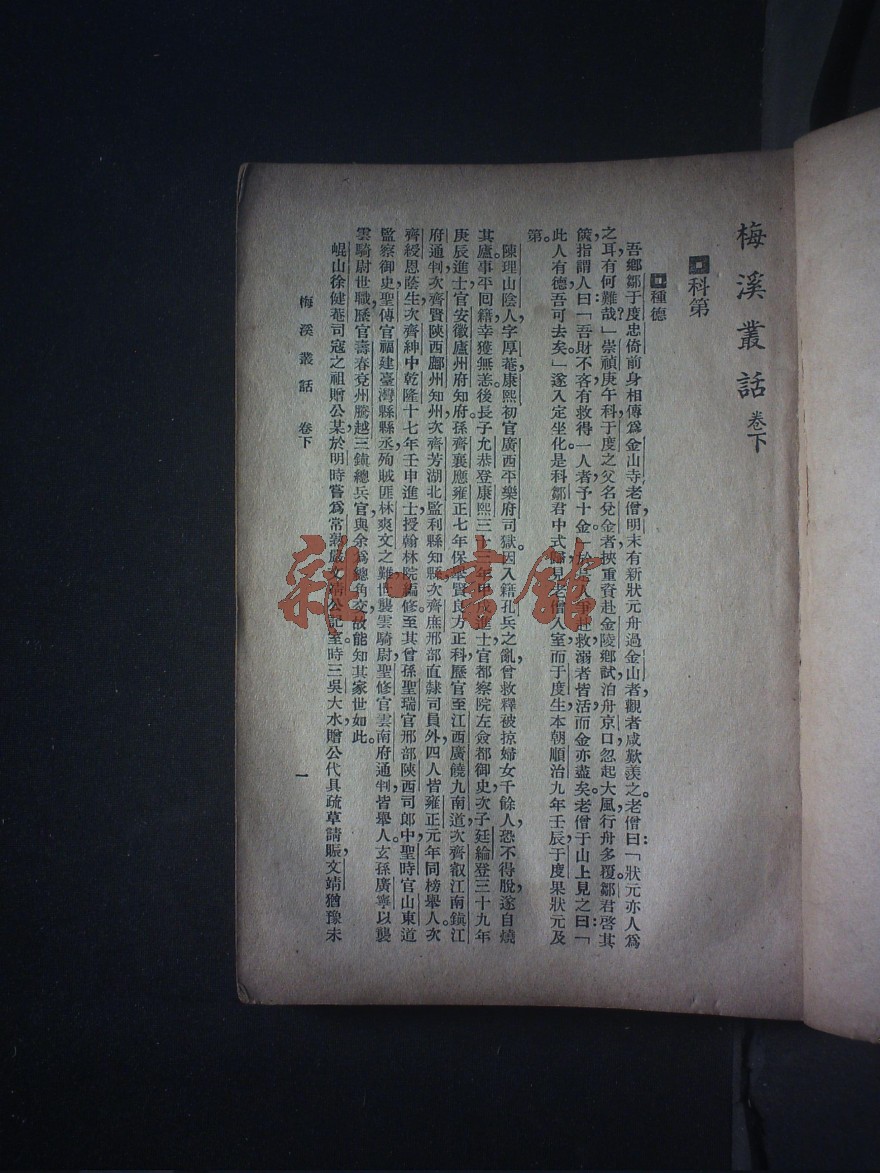 梅溪叢話 卷下
科第
種德
吾鄉鄒于度忠倚前身相傳爲金山寺老僧,明末有新狀元舟過金山者,觀者咸歎羨之。老僧曰:「狀元亦人爲
之耳,有何難哉?」崇禎庚午科,于度之父名兌金者,挾重資赴金陵鄉試,泊舟京口,忽起大風,行舟多覆。鄒君啓其
篋,指謂人曰:「吾財不吝,有救得一人者予十金。」於是人爭赴救,溺者皆活,而金亦盡矣。老僧于山上見之曰:「
此人有德,吾可去矣。」遂入定坐化。是科鄒君中式,歸見老僧入室而于度生,本朝順治九年壬辰,于度果狀元及
第。
陳理山陰人,字厚菴,康熙初官廣西平樂府司獄。因入籍孔兵之亂,曾救釋被掠婦女千餘人,恐不得脫,遂自燒
其廬,事平回籍,幸獲無恙。後長子允恭登康熙三十三年甲戌進士,官都察院左僉都御史,次子廷綸登三十九年
庚辰進士,官安徽廬州府知府,孫齊襄應雍正七年保舉賢良方正科,歷官至江西廣饒九南道,次齊叡江南鎮江
府通判,次齊賢陝西鄜州知州,次齊芳湖北監利縣知縣,次齊庶邢部直隸司員外,四人皆雍正元年同榜舉人。次
齊綬恩蔭生,次齊紳中乾隆十七年壬申進士,授翰林院編修。至其曾孫聖瑞官邢部陝西司郎中,聖時官山東道
監察御史,聖傳官福建臺灣縣縣丞,殉賊匪林爽文之難,世襲雲騎尉,聖修官雲南府通判,皆舉人。玄孫廣寧以襲
雲騎尉世職,歷官壽春兗州騰越三鎮總兵官,與余爲總角交,故能知其家世如此。
崐山徐健菴司寇之祖贈公某,於明時嘗爲常熟嚴文靖公記室。時三吳大水,贈公代具疏草請賑,文靖猶豫未
梅溪叢話 卷下
一
雜書館